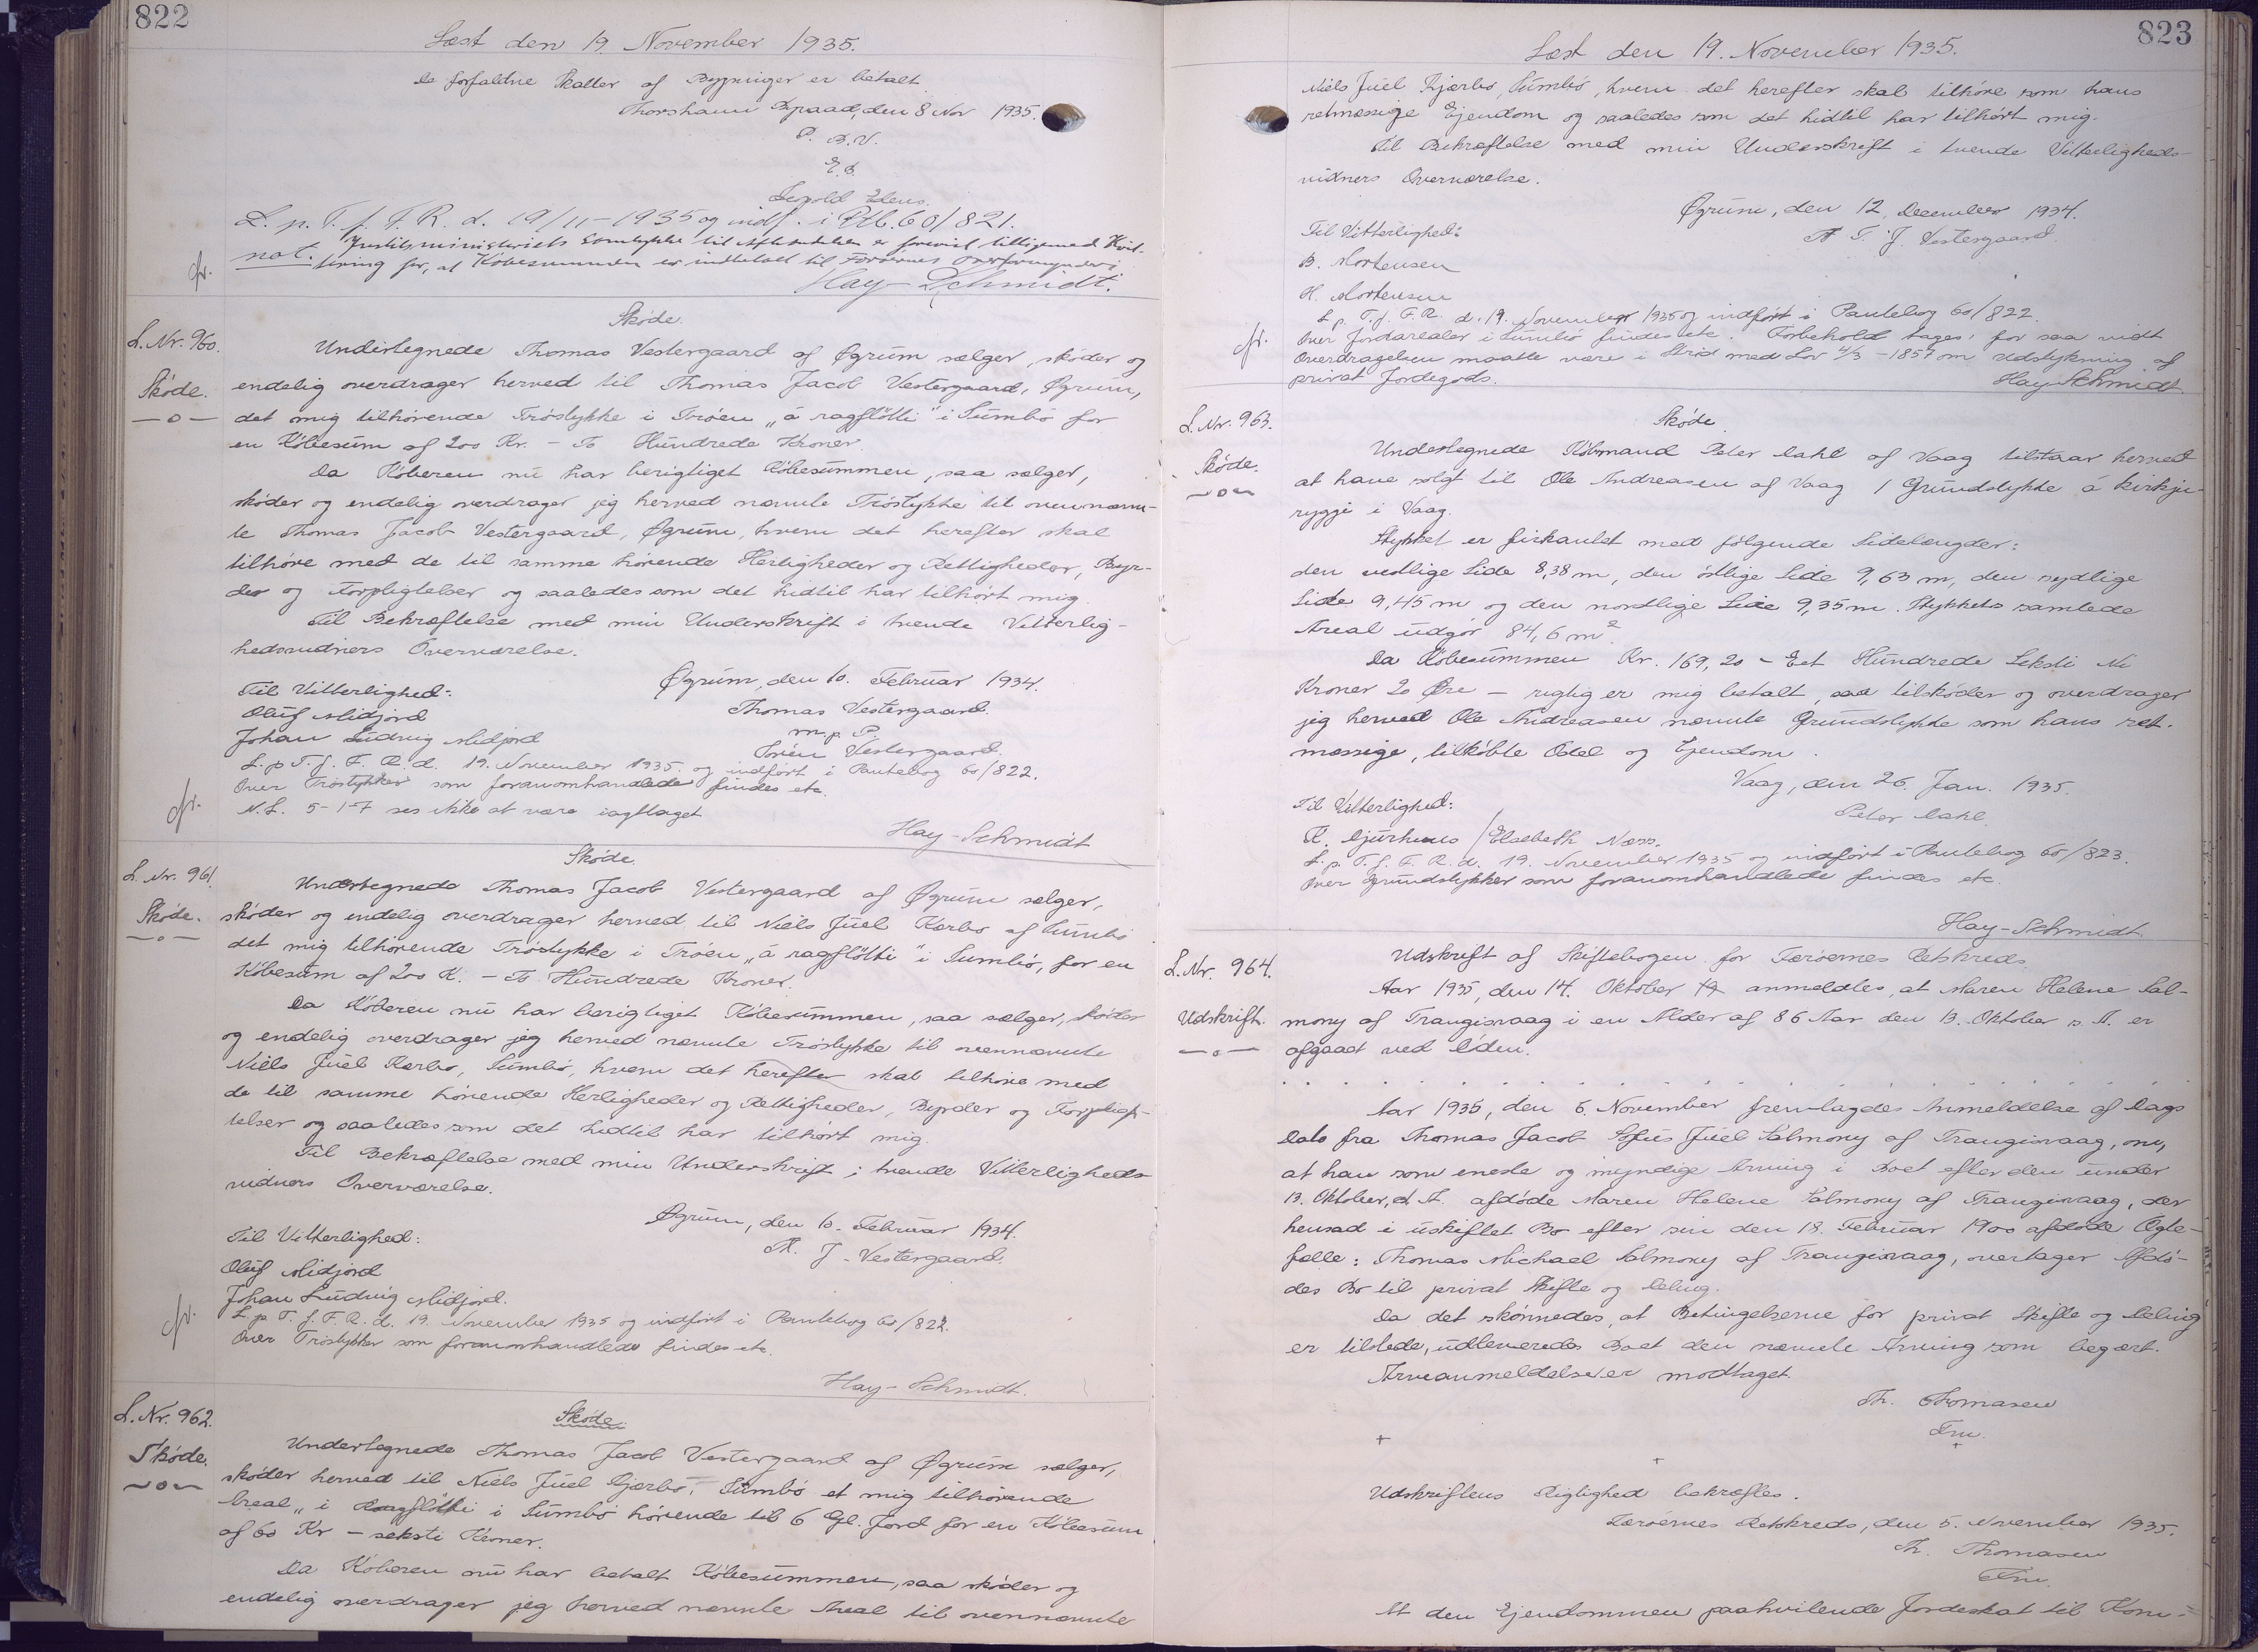 822
Læst den 19. November 1935.
De forfaldne Skatter af Bygninger er betalt
Thorshavn Byraad, den 8 Nov 1935.
P. B. V.
E. B.
Lepold
L. p. T. f. F. R. d. 19/11-1935 og indf. i Ptb. 60/821.
not. Justitsministeriets Samtykke til Afhændelsen er forevist tilligemed Kvit-
tering for, at Købesummen er indbetalt til Færøernes Overformynderi
Hay-Schmidt.
Skøde.
L. Nr. 960.
Skøde.
Undertegnede Thomas Vestergaard af Øgrum sælger, skøder og
endelig overdrager herved til Thomas Jacob Vestergaard, Øgrum,
det mig tilhørende Trøstykke i Trøen „á ragflötti" i Sumbø for
en Købesum af 200 Kr. - To Hundrede Kroner.
Da Køberen nu har berigtiget Købesummen, saa sælger,
skøder og endelig overdrager jeg herved nævnte Trøstykke til ovennævn-
te Thomas Jacob Vestergaard, Øgrum, hvem det herefter skal
tilhøre med de til samme hørende Herligheder og Rettigheder, Byr-
der og Forpligtelser og saaledes som det hidtil har tilhørt mig.
Til Bekræftelse med min Underskrift i tvende Vitterlig-
hedsvidners Overværelse.
Øgrum, den 10. Februar 1934.
Til Vitterlighed:
Thomas Vestergaard.
Oluf Midjord
m. p. P.
Johan Ludvig Midjord
Vestergaard.
L. p. T. f. F. R. d. 19. November 1935. og indført i Pantebog 60/822.
Over Trøstykker som foranomhandlede findes etc.
N. L. 5-1-7 ses ikke at være iagttaget
Hay-Schmidt
Skøde.
L. Nr. 961.
Skøde.
Undertegnede Thomas Jacob Vestergaard af Øgrum sælger,
skøder og endelig overdrager herved til Niels Juel Kærbo af Sumbø
det mig tilhørende Trøstykke i Trøen „á ragflötti" i Sumbø, for en
Købesum af 200 K. - To Hundrede Kroner.
Da Køberen nu har berigtiget Købesummen, saa sælger, skøder
og endelig overdrager jeg herved nævnte Trøstykke til ovennævnte
Niels Juel Kærbo, Sumbø, hvem det herefter skal tilhøre med
de til samme hørende Herligheder og Rettigheder, Byrder og Forpligt-
telser og saaledes som det hidtil har tilhørt mig.
Til Bekræftelse med min Underskrift i tvende Vitterligheds-
vidners Overværelse.
Øgrum, den 10. Februar 1934.
Til Vitterlighed:
Th. J. Vestergaard.
Oluf Midjord
Johan Ludvig Midjord.
L. p. T. f. F. R. d. 19. November 1935 og indført i Pantebog 60/822.
Over Trøstykker som foranomhandlede findes etc.
Hay-Schmidt.
L. Nr. 962.
Skøde.
Skøde.
Undertegnede Thomas Jacob Vestergaard af Øgrum sælger,
skøder herved til Niels Juel Kjærbo, Sumbø et mig tilhørende
Areal „i ragflötti i Sumbø hørende til 6 Gl. Jord for en Købesum
af 60 Kr - seksti Kroner.
Da Køberen nu har betalt Købesummen, saa skøder og
endelig overdrager jeg herved nævnte Areal til ovennævnte
823
Læst den 19. November 1935.
Niels Juel Kjærbo, Sumbø, hvem det herefter skal tilhøre som hans
retmæssige Ejendom og saaledes som det hidtil har tilhørt mig.
Til Bekræftelse med min Underskrift i tvende Vitterligheds-
vidners Overværelse.
Øgrum, den 12. December 1934.
Til Vitterlighed:
Th. J. Vestergaard.
B. Mortensen
H. Mortensen
L. p. T. f. F. R. d. 19. November 1935 og indført i Pantebog 60/822.
Over Jordarealer i Sumbø findes etc. Forbehold tages, for saa vidt
Overdragelsen maatte være i Strid med Lov 4/3 - 1857 om Udstykning af
privat Jordegods.
Hay-Schmidt
Skøde.
L. Nr. 963.
Skøde.
Undertegnede Købmand Peter Dahl af Vaag tilstaar herved
at have solgt til Ole Andreasen af Vaag 1 Grundstykke á kirkju-
ryggi i Vaag.
Stykket er firkantet med følgende Sidelængder:
den vestlige Side 8,38 m, den østlige Side 9,63 m, den sydlige
Side 9,45 m og den nordlige Side 9,35 m. Stykkets samlede
Areal udgør 84,6 m².
Da Købesummen Kr. 169,20 - Eet Hundrede Seksti Ni
Kroner 20 Øre - rigtig er mig betalt, saa tilskøder og overdrager
jeg herved Ole Andreasen nævnte Grundstykke som hans ret-
mæssige, tilkøbte Odel og Ejendom.
Vaag, den 26. Jan. 1935.
Til Vitterlighed:
Peter Dahl.
K. Djurhuus / Elsebeth Næss.
L. p. T. f. F. R. d. 19. November 1935 og indført i Pantebog 60/823.
Over Grundstykker som foranomhandlede findes etc.
Hay-Schmidt.
L. Nr. 964.
Udskrift.
Udskrift af Skiftebogen for Færøernes Retskreds.
Aar 1935, den 14. Oktober anmeldtes, at Maren Helene Sal-
mony af Trangisvaag i en Alder af 86 Aar den 13. Oktober s. A. er
afgaaet ved Døden.
Aar 1935, den 5. November fremlagdes Anmeldelse af Dags
Dato fra Thomas Jacob Sofus Juel Salmony af Trangisvaag, om,
at han som eneste og myndige Arving i Boet efter den under
13. Oktober, d. A. afdøde Maren Helene Salmony af Trangisvaag, der
hensad i uskiftet Bo efter sin den 18. Februar 1900 afdøde Ægte-
fælle: Thomas Michael Salmony af Trangisvaag, overtager Afdø-
des Bo til privat Skifte og Deling.
Da det skønnedes, at Betingelserne for privat Skifte og Deling
er tilstede, udleveredes Boet den nævnte Arving som begært.
Arveanmeldelse er modtaget.
Th. Thomasen
Fm.
Udskriftens Rigtighed bekræftes.
Færøernes Retskreds, den 5. November 1935.
Th. Thomasen
Fm.
At den Ejendommen paahvilende Jordeskat til Kom-